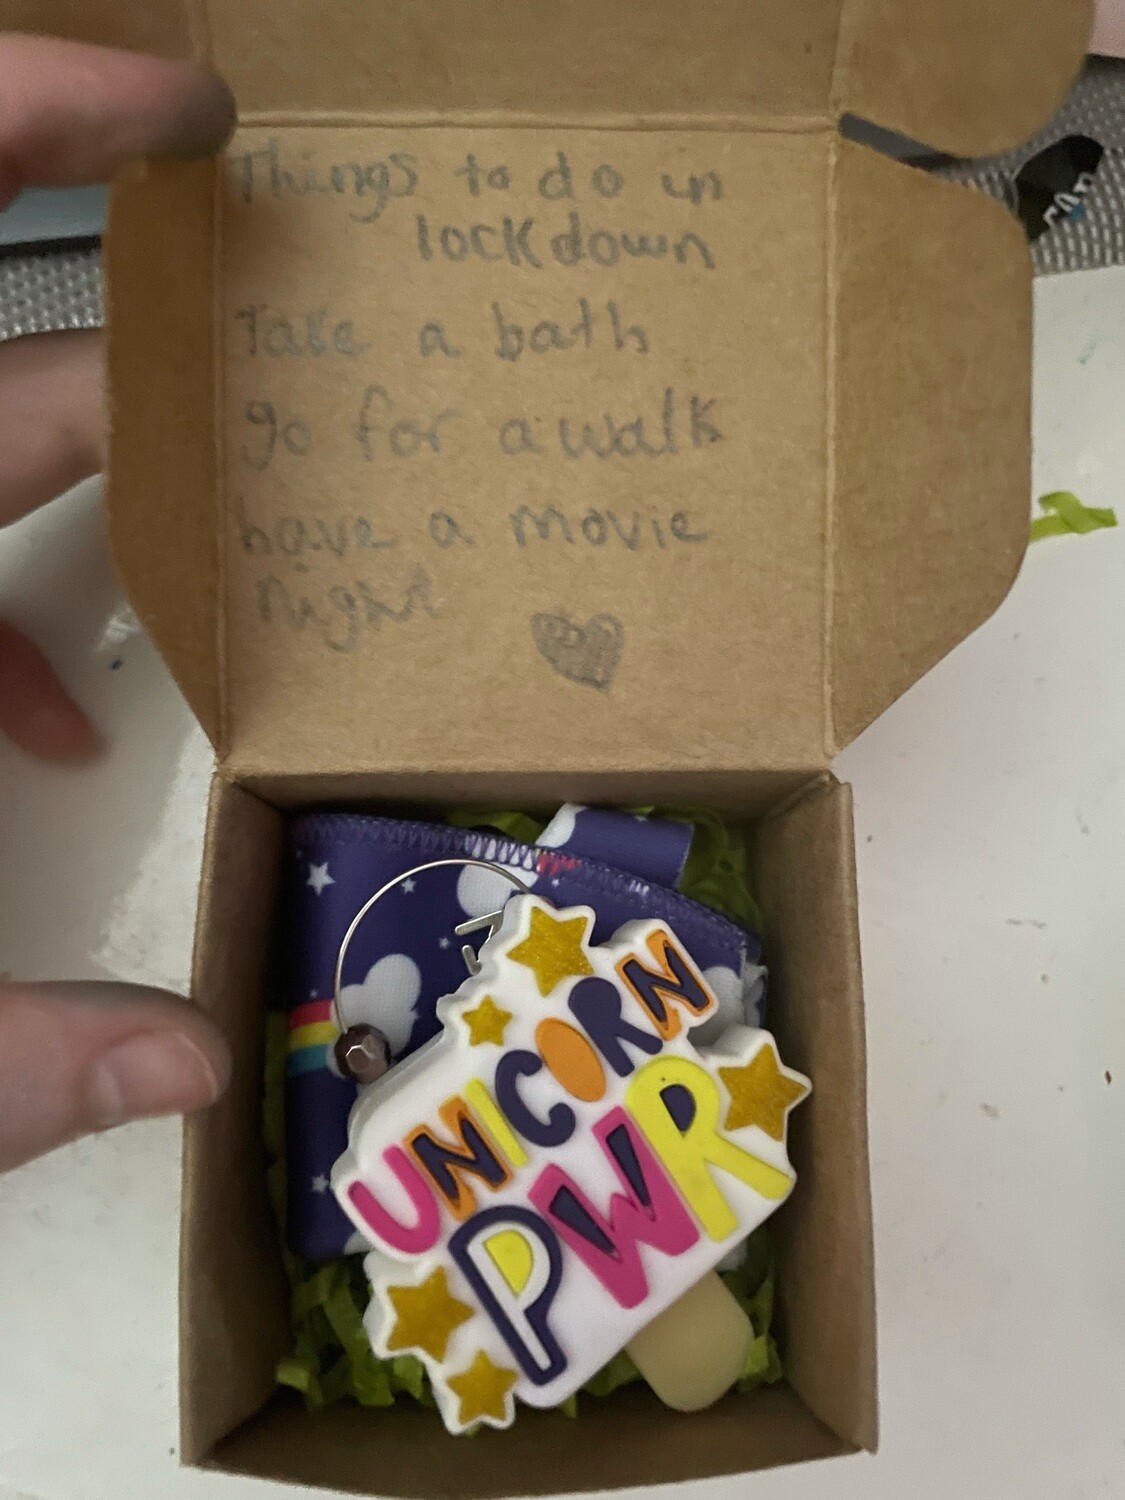 Things to do in
lockdown
Take a bath
go for a walk
have a movie
night
UNICORN
PWR